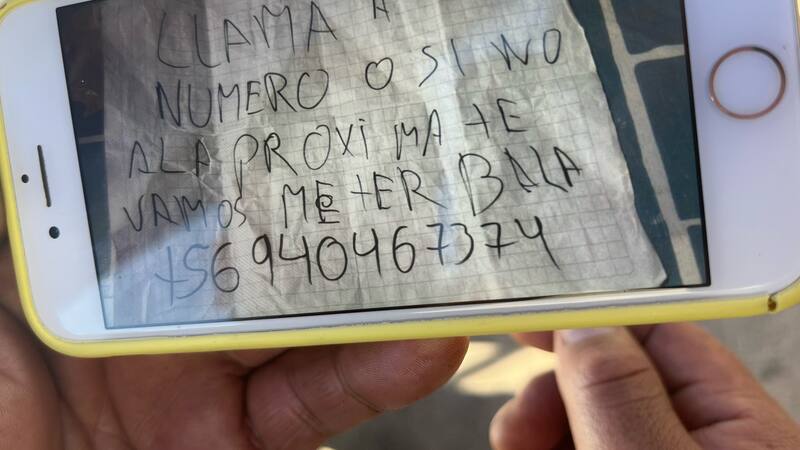 LLAMA A
NUMERO O SI NO
ALA PROXIMA TE
VAMOS METER BALA
+56940467374